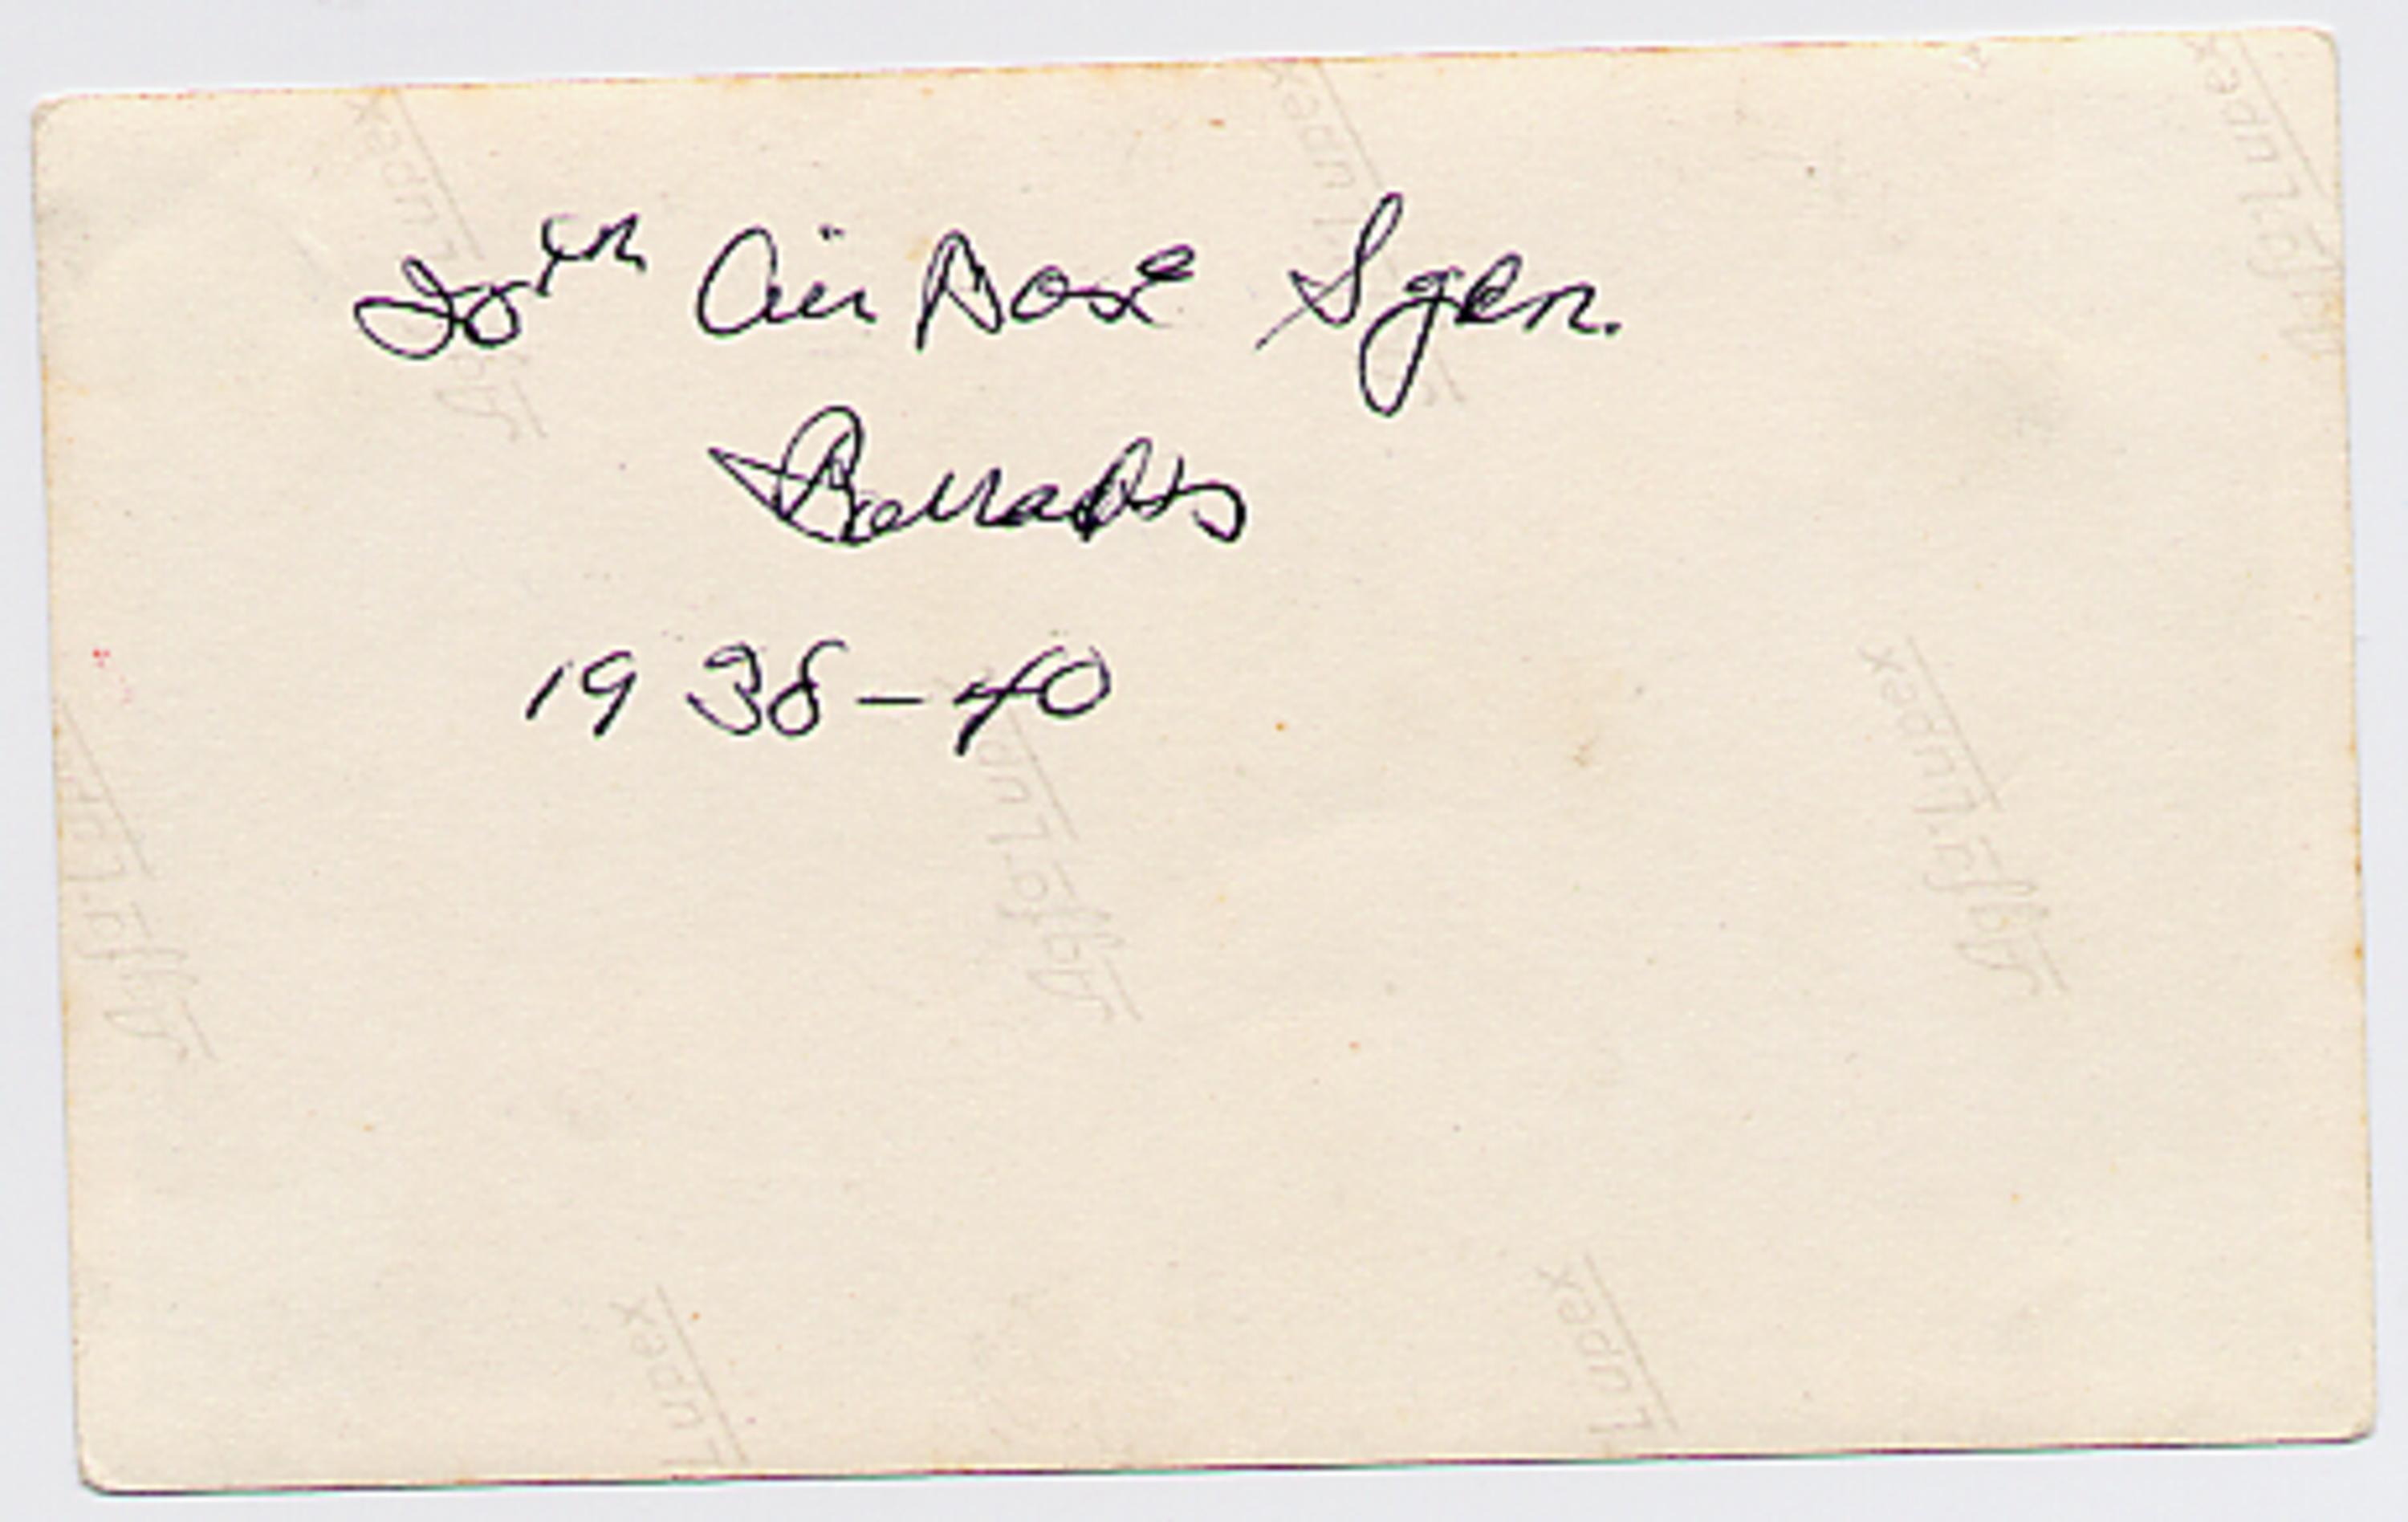 20th Air Base Sqdn.
Barracks
1938-40
Agfa-Lupex
Agfa-Lupex
Agfa-Lupex
Agfa-Lupex
Agfa-Lupex
Agfa-Lupex
Lupex
Lupex